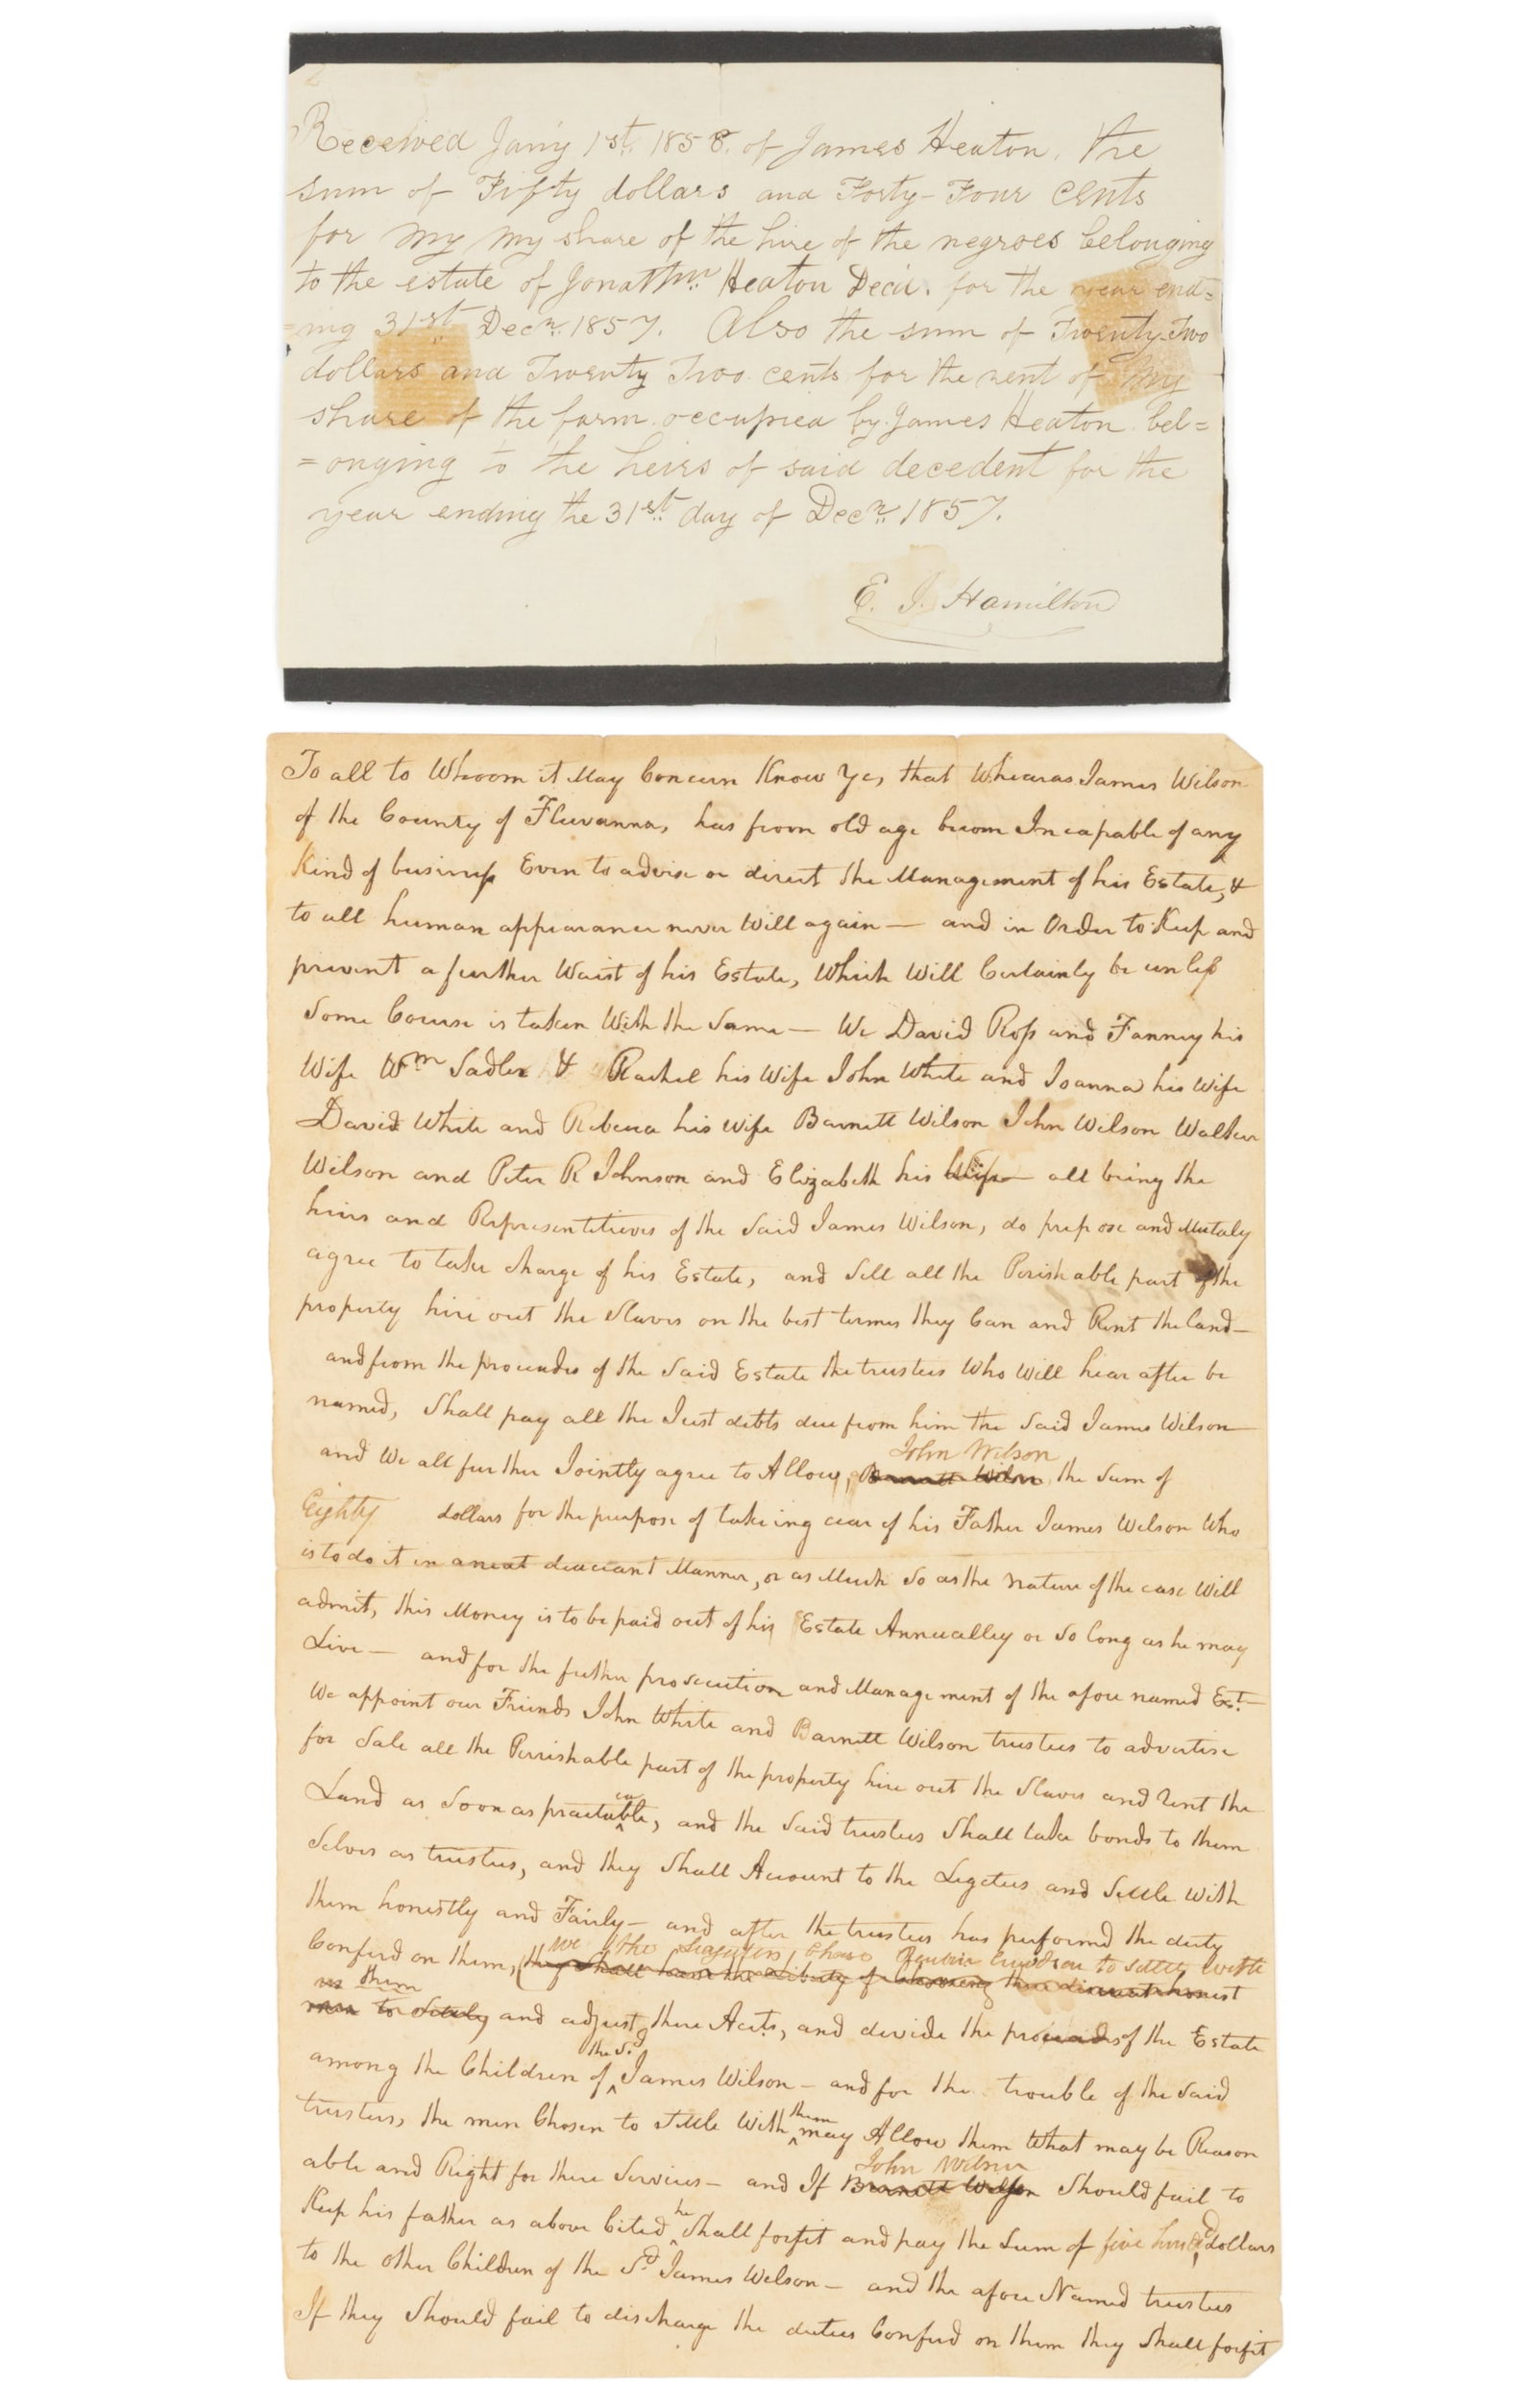 Received Jan'y 1st. 1858. of James Heaton, the
sum of Fifty dollars and Forty-Four cents
for my my share of the hire of the negroes belonging
to the estate of Jonathn. Heaton Decd. for the year end=
=ing 31st Decr. 1857. Also the sum of Twenty-Two
dollars and Twenty Two cents for the rent of my
share of the farm occupied by James Heaton bel=
=onging to the heirs of said decedent for the
year ending the 31st. day of Decr. 1857.
E. J. Hamilton
To all to Whoom it May Concern Know Ye, that Whearas James Wilson
of the County of Fluvanna, has from old age becom Incapable of any
Kind of business Even to advise or direct the Management of his Estate, &
to all human appearance never Will again — and in Order to Keep and
prevent a further Waist of his Estate, Which Will Certainly be unless
Some Course is taken With the Same — We David Ross and Fanney his
Wife Wm Sadler & Rachel his Wife John White and Joanna his Wife
David White and Rebeca his Wife Barnett Wilson John Wilson Walker
Wilson and Peter R Johnson and Elizabeth his Wife — all being the
heirs and Representitieves of the Said James Wilson, do prepose and Mutaly
agree to take Charge of his Estate, and Sell all the Perishable part of the
property hire out the Slaves on the best termes they Can and Rent the Land —
and from the proceudes of the Said Estate the trustees Who Will hear after be
named, Shall pay all the Just debts due from him the Said James Wilson —
and We all further Jointly agree to Allow, Barnett Wilson John Wilson the Sum of
Eighty dollars for the purpose of takeing cear of his Father James Wilson Who
is to do it in a neat deaceant Manner, or as Much So as the Nature of the case Will
admit, this Money is to be paid out of his Estate Annualley or So long as he may
Live — and for the futher prosecution and Management of the afore named Est. —
We appoint our Friends John White and Barnett Wilson trustees to advertise
for Sale all the Perrishable part of the property hire out the Slaves and Rent the
Land as Soon as practicable, and the Said trustees Shall take bonds to them
Selves as trustees, and they Shall Account to the Legetees and Settle With
them honestly and Fairly — and after the trustees has performed the duty
we the
Conferd on them, they Shall have the Liberty of Choosing to settle with
them
men to Settle and adjust there Acts., and devide the proceeds of the Estate
among the Children of the Sd James Wilson — and for the trouble of the Said
trustees, the men Chosen to Settle With them may Allow them What may be Reason
able and Right for there Services — and If Barnett Wilson John Wilson Should fail to
Keep his father as above Cited he Shall forfit and pay the Sum of five hund dollars
to the other Children of the Sd James Wilson — and the afore Named trustees
If they Should fail to discharge the duties Conferd on them they Shall forfit